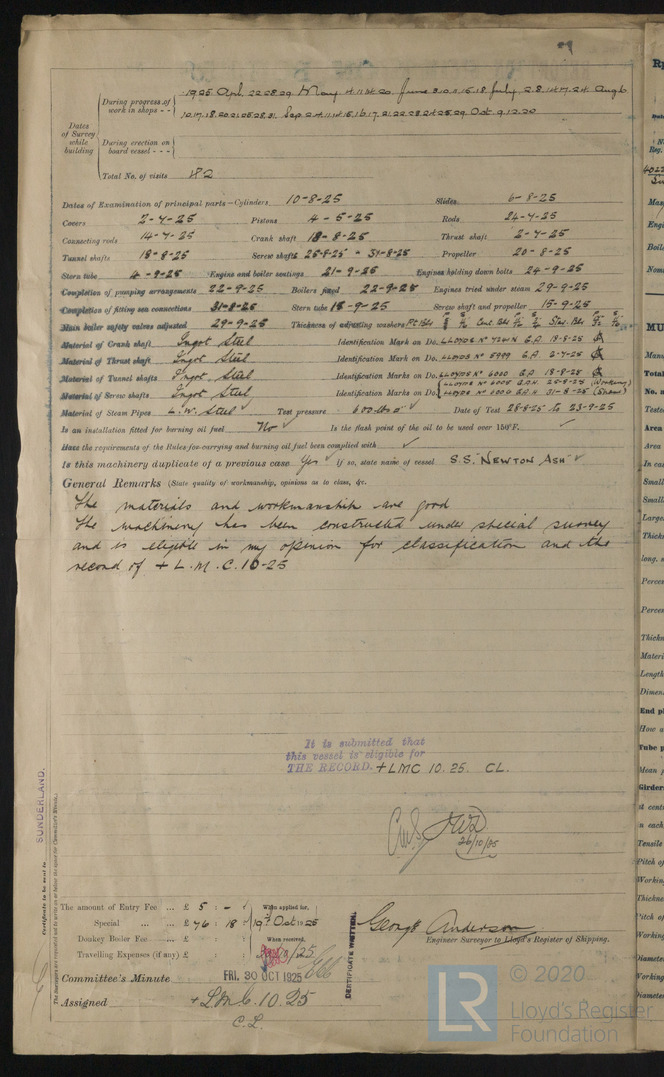 During progress of work in shops - - 1925 Apl. 22.28.29. May 4.11.14.20. June 3.10.11.15.18 July 2.8.14.17.24. Aug 6
10.17.18.20.21.25.28.31. Sep 2.4.11.14.15.16.17.21.22.23.24.25.29. Oct. 9.12.20
Dates of Survey while building
During erection on board vessel - - -
Total No. of visits 42
Dates of Examination of principal parts—Cylinders 10-8-25 Slides 6-8-25
Covers 2-7-25 Pistons 4-5-25 Rods 24-7-25
Connecting rods 14-7-25 Crank shaft 18-8-25 Thrust shaft 2-7-25
Tunnel shafts 18-8-25 Screw shafts 25-8-25 - 31-8-25 Propeller 20-8-25
Stern tube 4-9-25 Engine and boiler seatings 21-9-25 Engines holding down bolts 24-9-25
Completion of pumping arrangements 22-9-25 Boilers fixed 22-9-25 Engines tried under steam 29-9-25
Completion of fitting sea connections 31-8-25 Stern tube 15-9-25 Screw shaft and propeller 15-9-25
Main boiler safety valves adjusted 29-9-25 Thickness of adjusting washers
Material of Crank shaft Ingot Steel Identification Mark on Do. LLOYDS No 7241N G.A. 18-8-25
Material of Thrust shaft Ingot Steel Identification Mark on Do. LLOYDS No 5999 G.A. 2-7-25
Material of Tunnel shafts Ingot Steel Identification Marks on Do. LLOYDS No 6000 G.A. 18-8-25
Material of Screw shafts Ingot Steel Identification Marks on Do. LLOYDS No 6008 G.A.H. 25-8-25 (Working)
31-8-25 (Spare)
Material of Steam Pipes L.W. Steel Test pressure 600 lbs □" Date of Test 28-8-25 to 23-9-25
Is an installation fitted for burning oil fuel No Is the flash point of the oil to be used over 150°F.
Have the requirements of the Rules for carrying and burning oil fuel been complied with
Is this machinery duplicate of a previous case Yes If so, state name of vessel S.S. "NEWTON ASH"
General Remarks (State quality of workmanship, opinions as to class, &c.
The materials and workmanship are good
The machinery has been constructed under special survey
and is eligible in my opinion for classification and the
record of + L.M.C. 10-25
It is submitted that
this vessel is eligible for
THE RECORD. + LMC 10.25 CL.
26/10/25
SUNDERLAND.
Certificate to be sent to
The amount of Entry Fee ... £ 5 : - : When applied for,
Special ... £ 76 : 18 : 19th Oct 1925
Donkey Boiler Fee ... £ : : When received,
Travelling Expenses (if any) £ : :
CERTIFICATE WRITTEN.
George Anderson
Engineer Surveyor to Lloyd's Register of Shipping.
Committee's Minute FRI. 30 OCT 1925
Assigned + LMC. 10.25
C.L.
LR © 2020
Lloyd's Register
Foundation